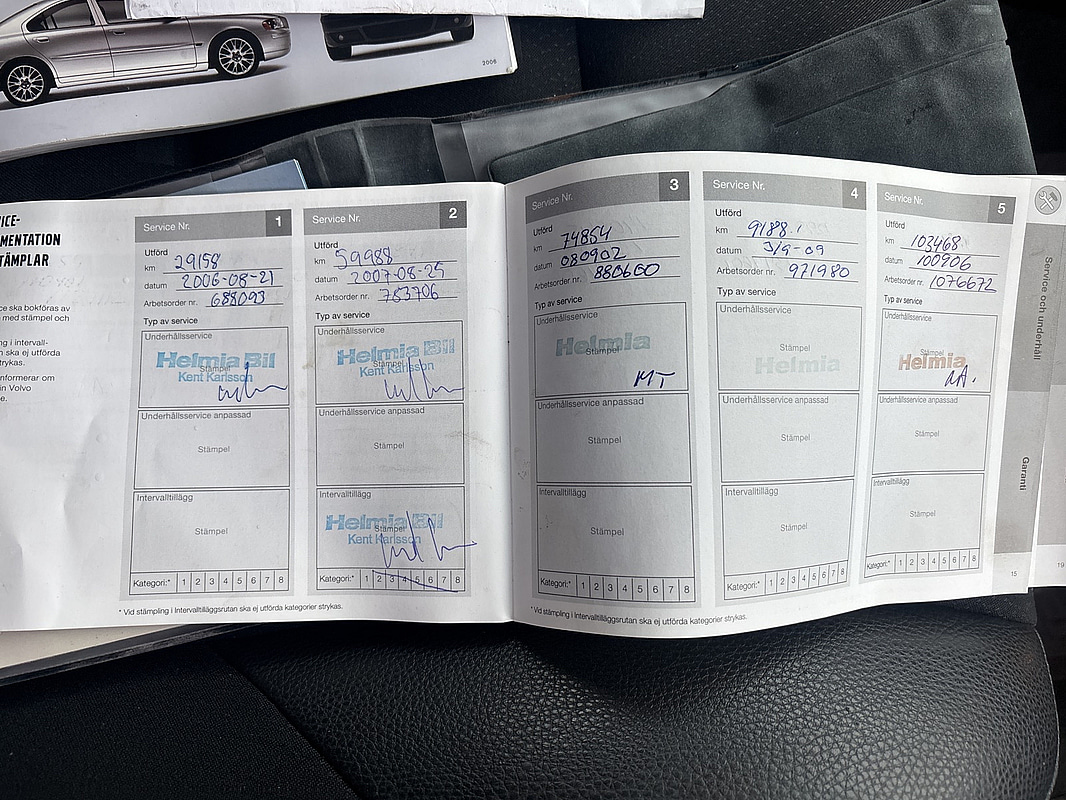 2006
ICE-
MENTATION
TÄMPLAR
ce ska bokföras av
med stämpel och
ng i intervall-
n ska ej utförda
trykas.
nformerar om
in Volvo
e.
Service Nr. 1
Utförd
km 29158
datum 2006-08-21
Arbetsorder nr. 688093
Typ av service
Underhållsservice
Helmia Bil
Kent Karlsson
Underhållsservice anpassad
Stämpel
Intervalltillägg
Stämpel
Kategori:* 1 2 3 4 5 6 7 8
Service Nr. 2
Utförd
km 59988
datum 2007-08-25
Arbetsorder nr. 753706
Typ av service
Underhållsservice
Helmia Bil
Stämpel
Kent Karlsson
Underhållsservice anpassad
Stämpel
Intervalltillägg
Helmia Bil
Stämpel
Kent Karlsson
Kategori:* 1 2 3 4 5 6 7 8
* Vid stämpling i Intervalltilläggsrutan ska ej utförda kategorier strykas.
Service Nr. 3
Utförd
km 74854
datum 080902
Arbetsorder nr. 880600
Typ av service
Underhållsservice
Helmia
Stämpel
MT
Underhållsservice anpassad
Stämpel
Intervalltillägg
Stämpel
Kategori:* 1 2 3 4 5 6 7 8
Service Nr. 4
Utförd
km 9188
datum 3/9-09
Arbetsorder nr. 971980
Typ av service
Underhållsservice
Stämpel
Helmia
Underhållsservice anpassad
Stämpel
Intervalltillägg
Stämpel
Kategori:* 1 2 3 4 5 6 7 8
Service Nr. 5
Utförd
km 103468
datum 100906
Arbetsorder nr. 1076672
Typ av service
Underhållsservice
Stämpel
Helmia
Underhållsservice anpassad
Stämpel
Intervalltillägg
Stämpel
Kategori:* 1 2 3 4 5 6 7 8
* Vid stämpling i Intervalltilläggsrutan ska ej utförda kategorier strykas.
15
Service och underhåll
Garanti
19